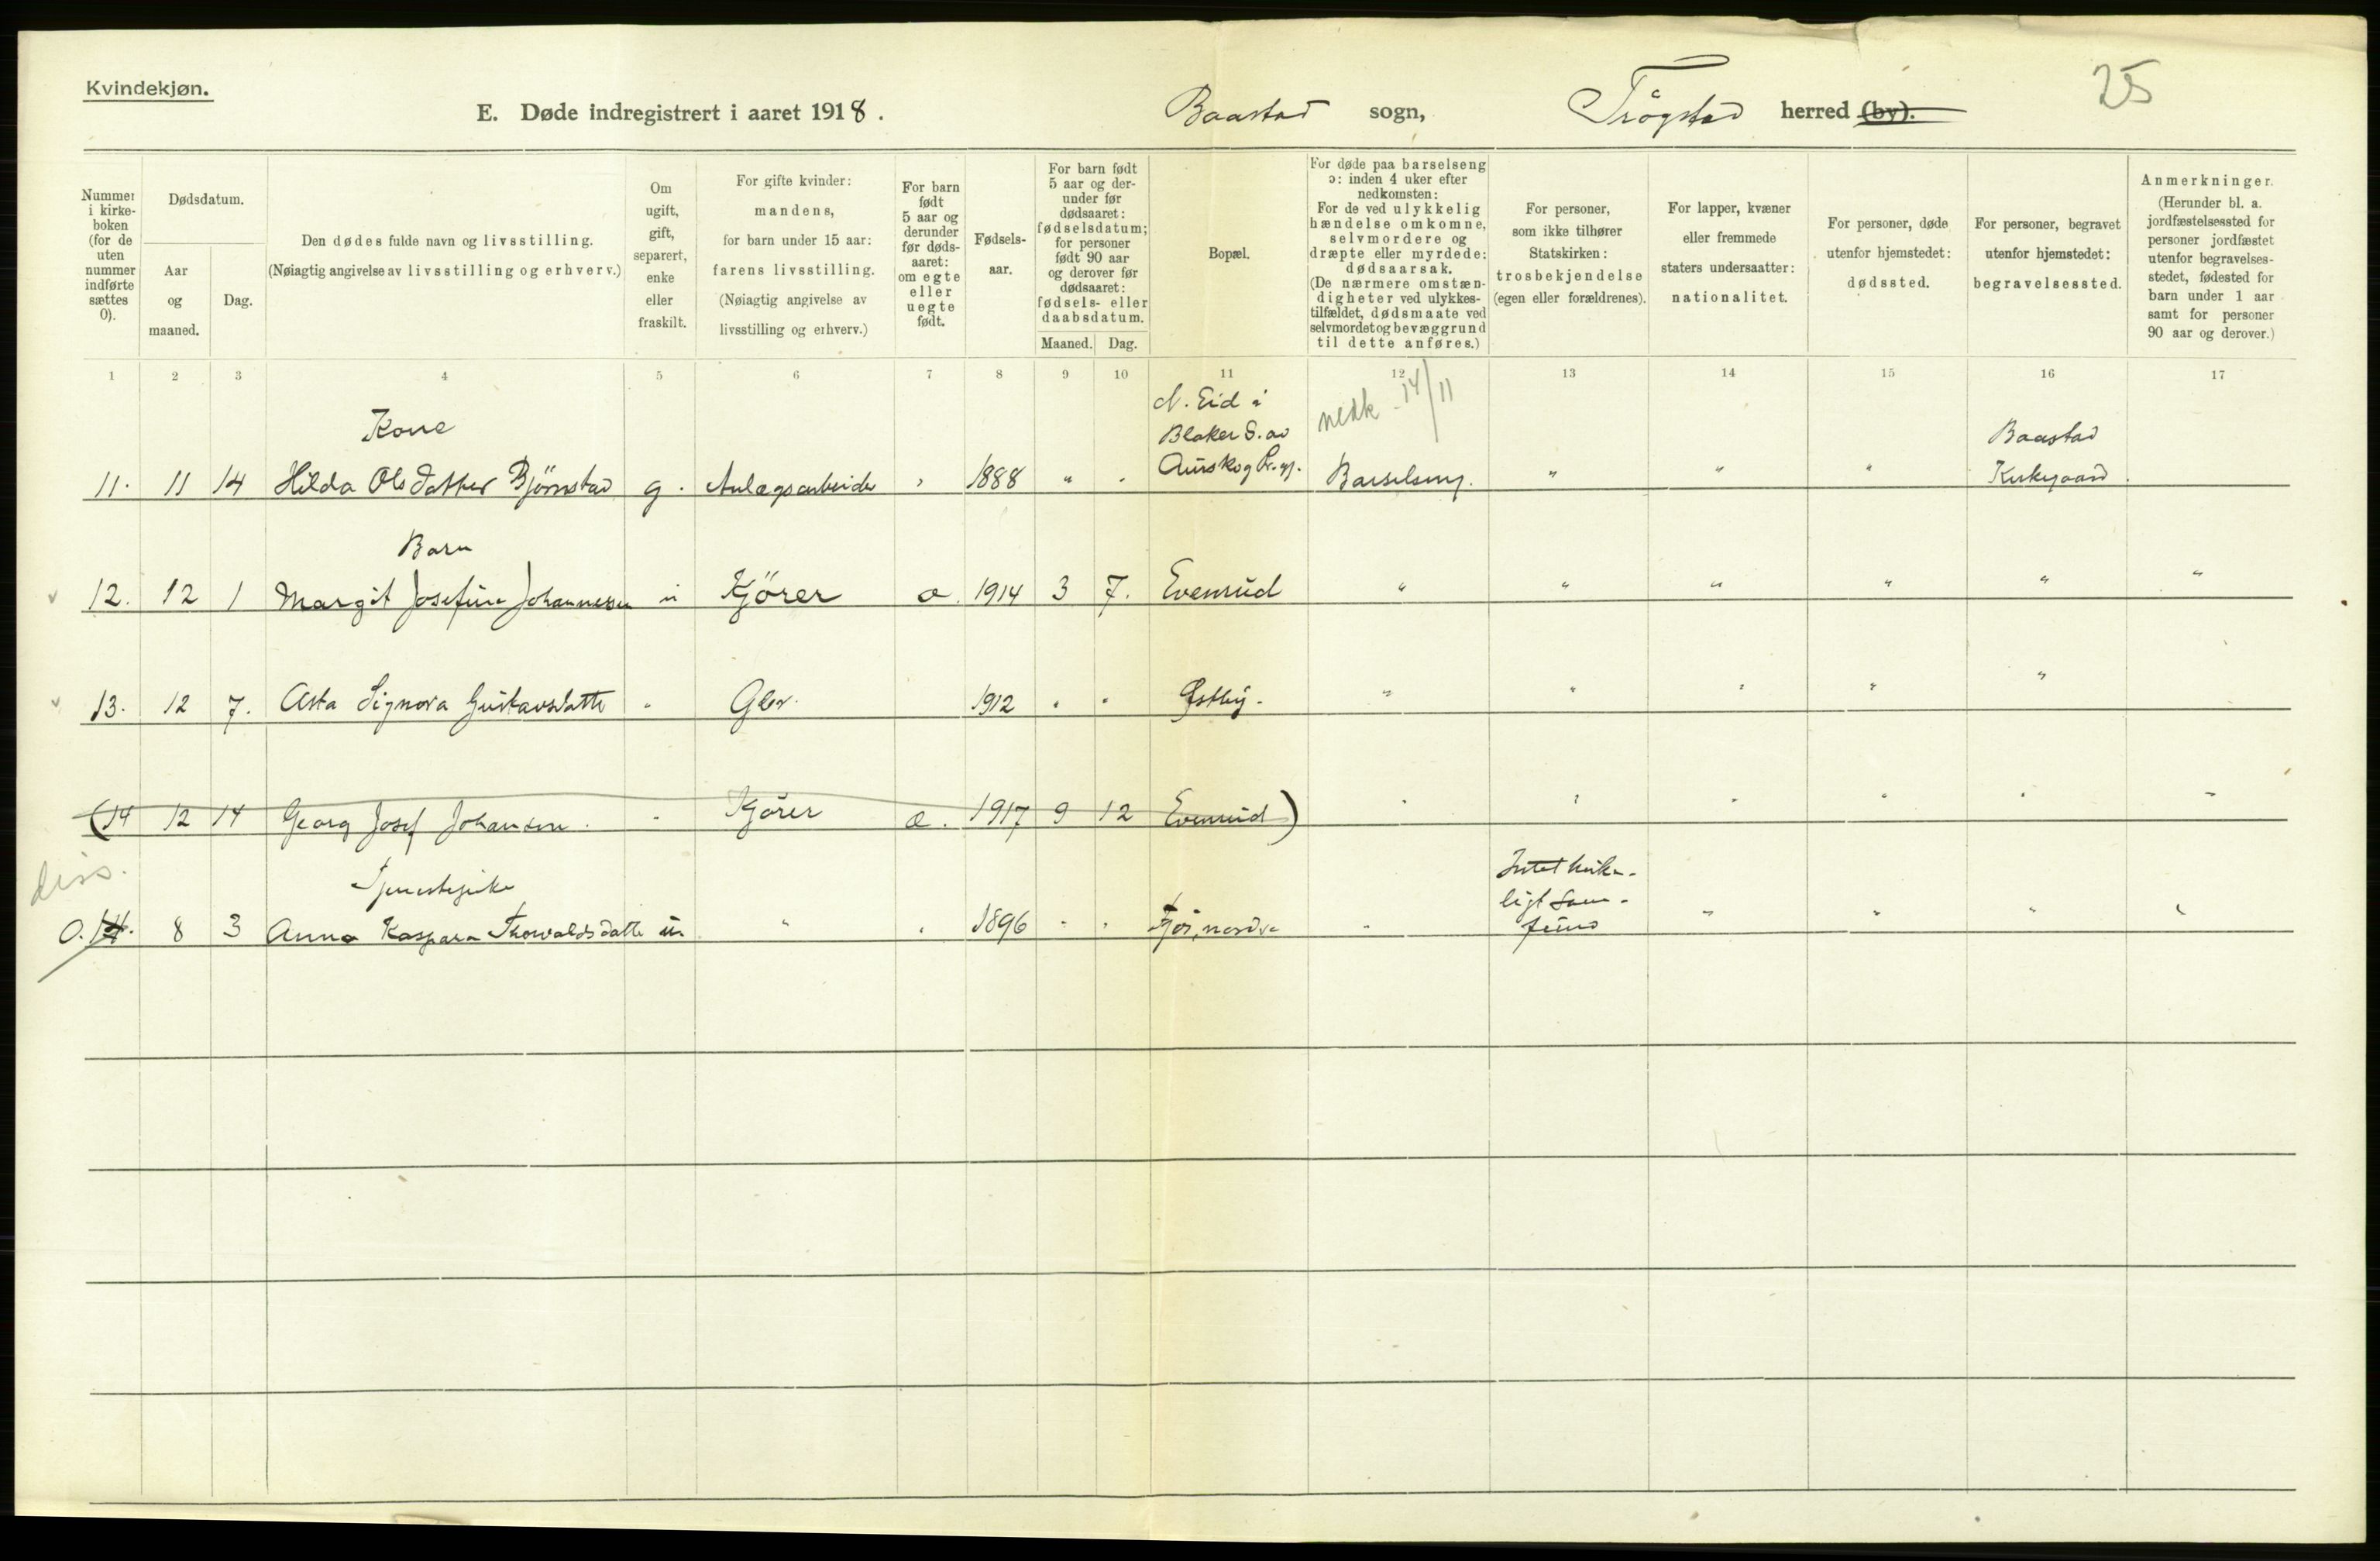 Kvindekjøn.
25
E. Døde indregistrert i aaret 1918. Baastad sogn, Trøgstad herred (by).
Nummer i kirke-boken (for de uten nummer indførte sættes 0).
Dødsdatum.
Aar og maaned.
Dag.
Den dødes fulde navn og livsstilling.
(Nøiagtig angivelse av livsstilling og erhverv.)
Om ugift, gift, separert, enke eller fraskilt.
For gifte kvinder:
mandens,
for barn under 15 aar:
farens livsstilling.
(Nøiagtig angivelse av
livsstilling og erhverv.)
For barn født 5 aar og derunder før døds-aaret: om egte eller uegte født.
Fødsels-aar.
For barn født 5 aar og der-under før dødsaaret: fødselsdatum; for personer født 90 aar og derover før dødsaaret: fødsels- eller daabsdatum.
Maaned. Dag.
Bopæl.
For døde paa barselseng
ɔ: inden 4 uker efter
nedkomsten:
For de ved ulykkelig
hændelse omkomne,
selvmordere og
dræpte eller myrdede:
dødsaarsak.
(De nærmere omstæn-
digheter ved ulykkes-
tilfældet, dødsmaate ved
selvmordet og bevæggrund
til dette anføres.)
For personer,
som ikke tilhører
Statskirken:
trosbekjendelse
(egen eller forældrenes).
For lapper, kvæner
eller fremmede
staters undersaatter:
nationalitet.
For personer, døde
utenfor hjemstedet:
dødssted.
For personer, begravet
utenfor hjemstedet:
begravelsessted.
Anmerkninger.
(Herunder bl. a.
jordfæstelsessted for
personer jordfæstet
utenfor begravelses-
stedet, fødested for
barn under 1 aar
samt for personer
90 aar og derover.)
1 2 3 4 5 6 7 8 9 10 11 12 13 14 15 16 17
N. Eid i
nedk. 14/11
Kone
Blaker S. av
Baastad
11. 11 14 Hilda Olsdatter Bjørnstad g. Anlægsarbeider " 1888 " " Aurskog Pr.gj. Barselseng. " " " Kirkegaard.
Barn
12. 12 1 Margit Josefine Johannessen u Kjörer æ. 1914 3 7. Evenrud " " " " " "
13. 12 7. Asta Signora Gustavsdatter " Gbr. 1912 " " Østby. " " " " "
(14 12 14 Georg Josef Johansen. " Kjörer æ. 1917 9 12 Evenrud) " " " " " "
diss.
Tjenestepike
Intet kirke-
ligt Sam-
0. 14. 8 3 Anna Kaspara Thorvaldsdatter u. " " 1896 " " " fund " " " "